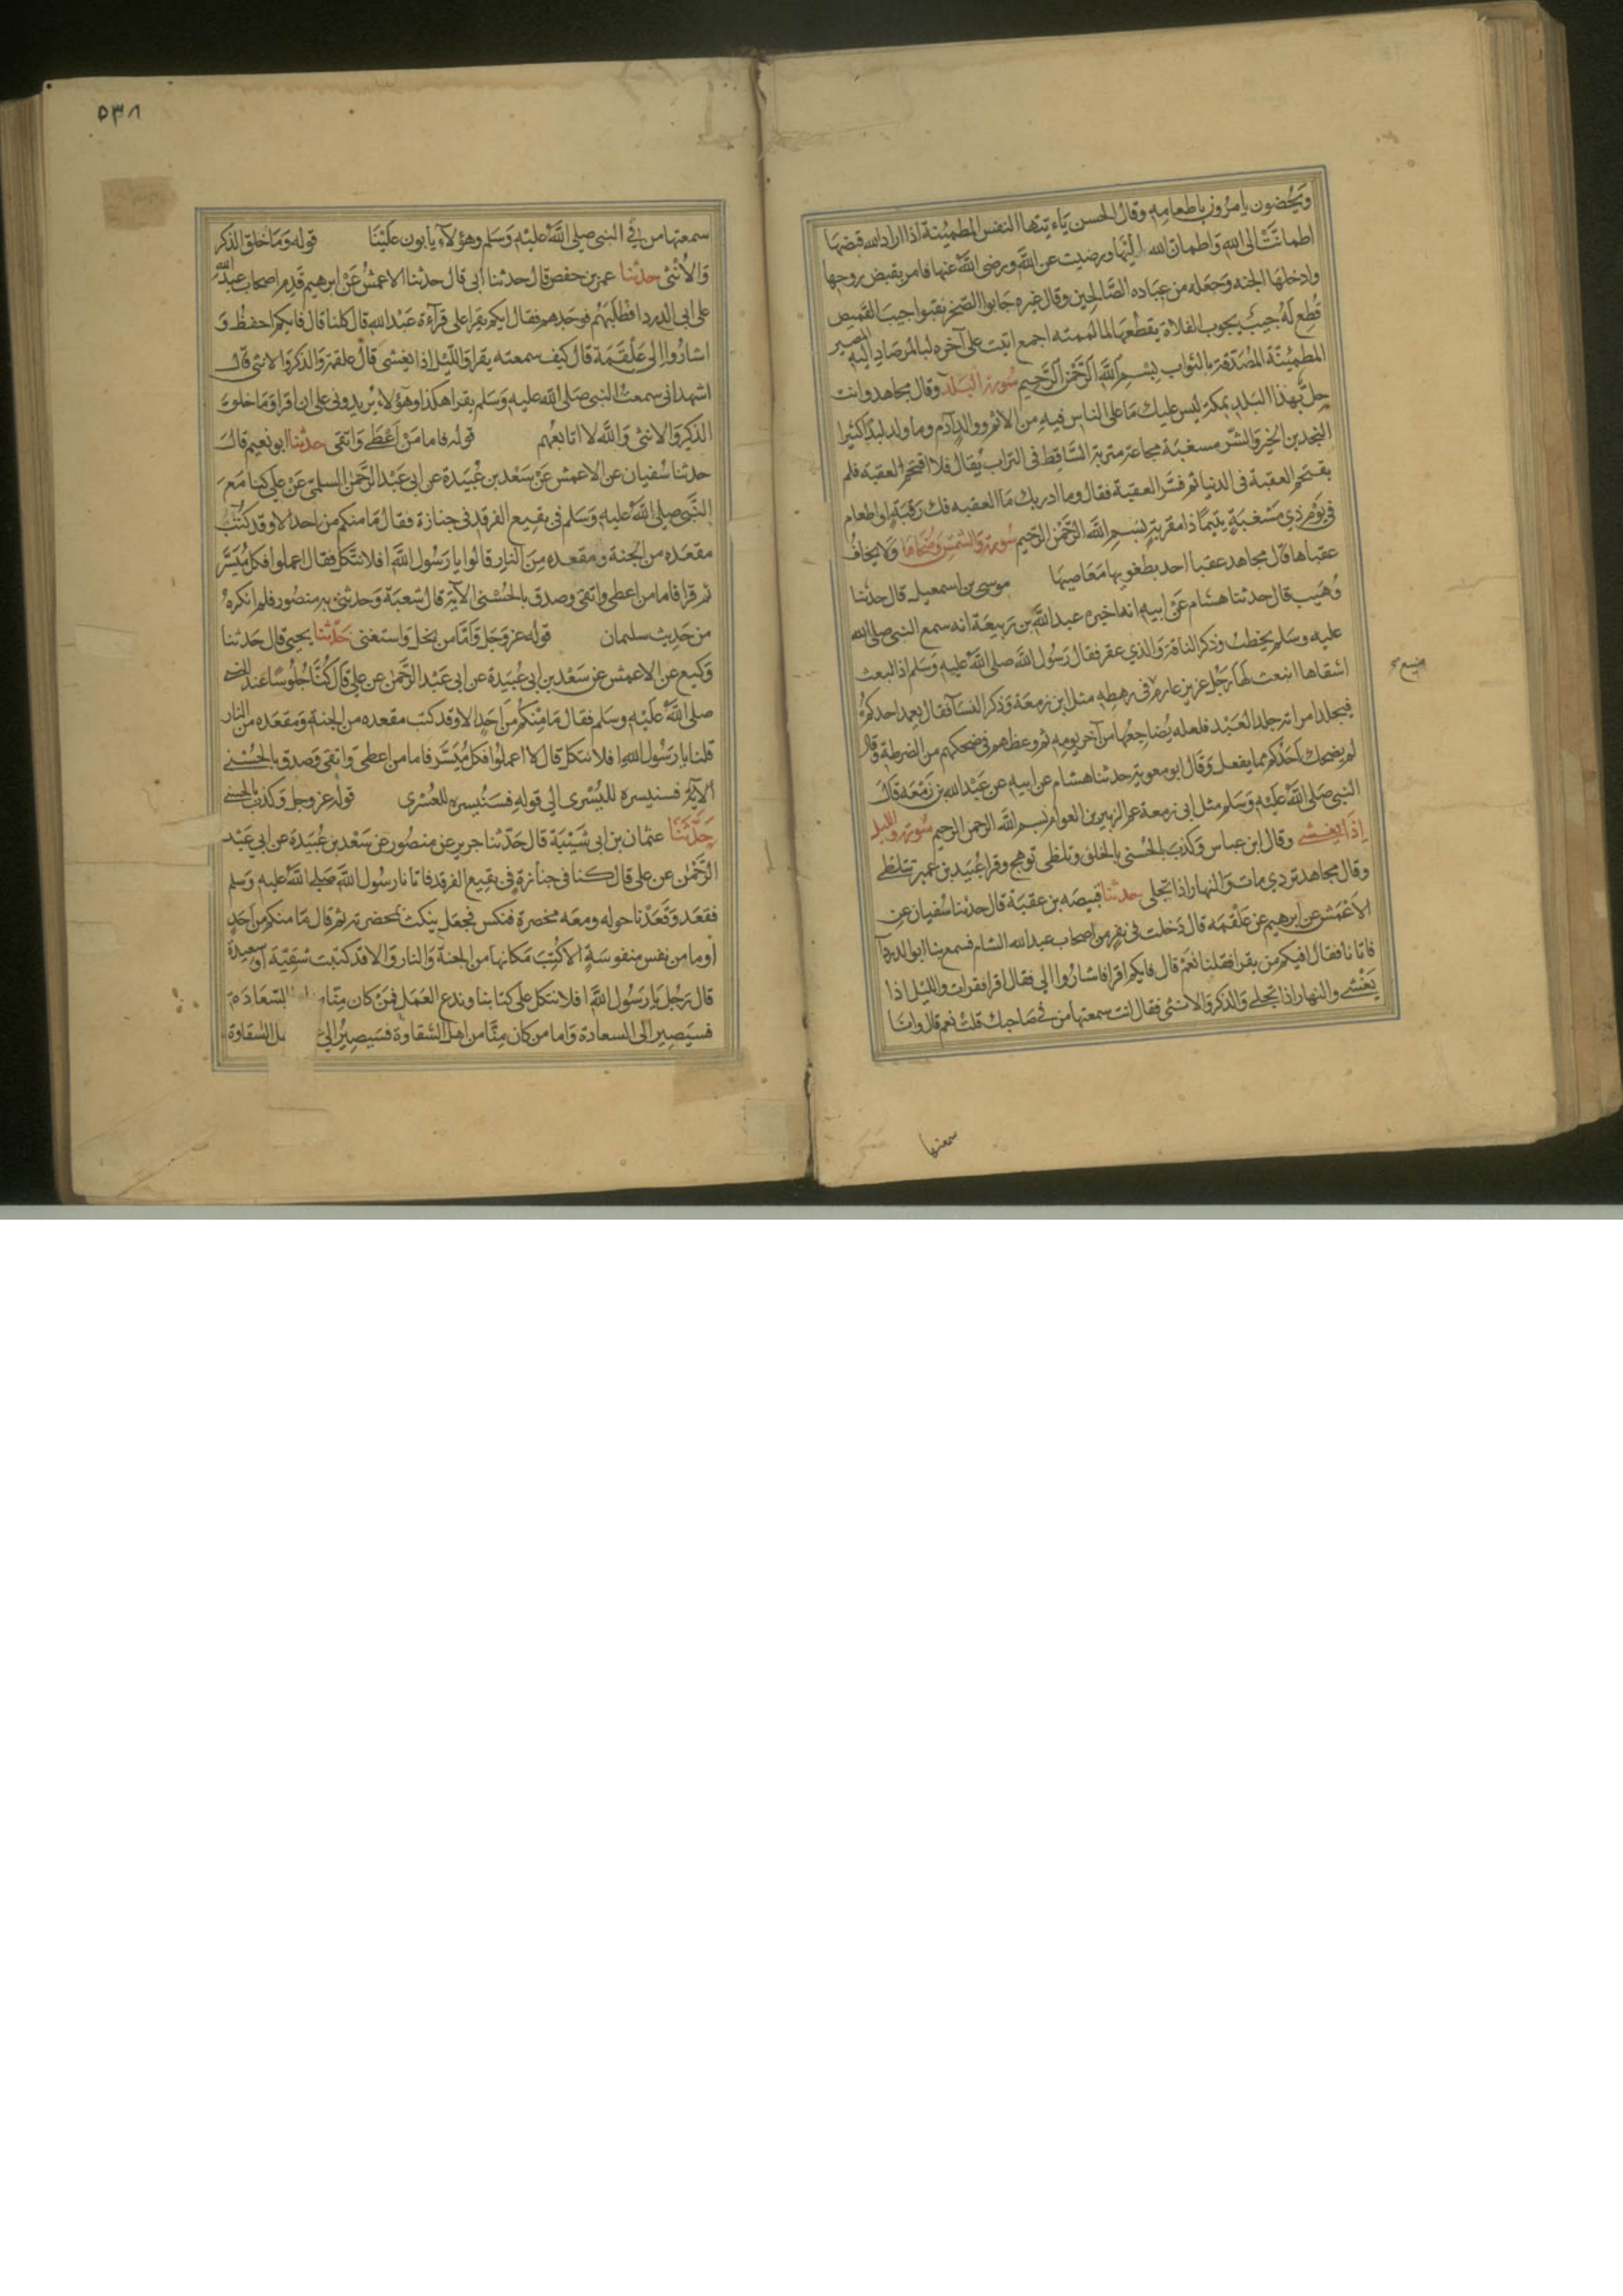 ويحضون يامرون باطعامه وقال الحسن ياءيتها النفس المطمئنة اذا اراد الله قبضها
اطمانت الى الله واطمان الله اليها ورضيت عن الله ورضى الله عنها فامر بقبض روحها
وادخلها الجنه وجعله من عباده الصالحين وقال غيره جابوا الصخر نقبوا جيب القميص
قطع له جيب يجوب الفلاة يقطعها لما لممته اجمع اتيت على آخره لبالمرصاد اليه المصير
المطمئنة المصدقة بالثواب بسم الله الرحمن الرحيم سورة البلد وقال مجاهد وانت
حل بهذا البلد بمكة ليس عليك ما على الناس فيه من الاثم ووالد آدم وما ولد لبدا كثيرا
النجدين الخير والشر مسغبة مجاعة متربة الساقط فى التراب يقال فلا اقتحم العقبة فلم
يقتحم العقبة فى الدنيا ثم فسر العقبة فقال وما ادريك ما العقبه فك رقبة او اطعام
فى يوم ذي مسغبة يتيما ذا مقربة بسم الله الرحمن الرحيم سورة والشمس وضحاها ولا يخاف
عقباها قال مجاهد عقبا احد بطغويها معاصيها موسى بن اسمعيل قال حدثنا
وهيب قال حدثنا هشام عن ابيه انه اخبره عبد الله بن ربيعة انه سمع النبى صلى الله
عليه وسلم يخطب وذكر الناقة والذي عقر فقال رسول الله صلى الله عليه وسلم اذ انبعث
اشقاها انبعث لها رجل عزيز عارم فى رهطه مثل ابن زمعة وذكر النسآ فقال يعمد احدكم
فيجلد امراته جلد العبد فلعله يضاجعها من آخر يومه ثم وعظهم فى ضحكهم من الضرطة وقال
لم يضحك احدكم مما يفعل وقال ابو معوية حدثنا هشام عن ابيه عن عبد الله بن زمعه قال
النبى صلى الله عليه وسلم مثل ابى زمعة عم الزبير بن العوام بسم الله الرحمن الرحيم سورة والليل
اذا يغشى وقال ابن عباس وكذب بالحسنى بالخلف وتلظى توهج وقرا عبيد بن عمير تتلظى
وقال مجاهد تردي مات والنهار اذا تجلى حدثنا قبيصه بن عقبة قال حدثنا سفيان عن
الاعمش عن ابرهيم عن علقمه قال دخلت فى نفر من اصحاب عبد الله الشام فسمع بنا ابو الدردآ
فاتانا فقال افيكم من يقرا فقلنا نعم قال فايكم اقرا فاشاروا الى فقال اقرا فقرات والليل اذا
يغشى والنهار اذا تجلى والذكر والانثى فقال انت سمعتها من فى صاحبك قلت نعم قال وانا
سمعتها
٥٣٨
سمعتها من في النبى صلى الله عليه وسلم وهؤلاء يابون علينا قوله وما خلق الذكر
والانثى حدثنا عمر بن حفص قال حدثنا ابى قال حدثنا الاعمش عن ابرهيم قدم اصحاب عبد الله
على ابى الدردا فطلبهم فوجدهم فقال ايكم يقرا على قرآءة عبد الله قال كلنا قال فايكم احفظ و
اشاروا الى علقمة قال كيف سمعته يقرا والليل اذا يغشى قال علقمة والذكر والانثى قال
اشهد انى سمعت النبى صلى الله عليه وسلم يقرا هكذا وهؤلاء يريدونى على ان اقرا وما خلق
الذكر والانثى والله لا اتابعهم قوله فاما من اعطى واتقى حدثنا ابو نعيم قال
حدثنا سفيان عن الاعمش عن سعد بن عبيدة عن ابى عبد الرحمن السلمى عن على كنا مع
النبى صلى الله عليه وسلم فى بقيع الفرقد فى جنازة فقال ما منكم من احد الا وقد كتب
مقعده من الجنة ومقعده من النار قالوا يا رسول الله افلا نتكل فقال اعملوا فكل ميسر
ثم قرا فاما من اعطى واتقى وصدق بالحسنى الآية قال شعبة وحدثنى به منصور فلم انكره
من حديث سليمان قوله عز وجل واما من بخل واستغنى حدثنا يحيى قال حدثنا
وكيع عن الاعمش عن سعد بن ابى عبيدة عن ابى عبد الرحمن عن على قال كنا جلوسا عند النبى
صلى الله عليه وسلم فقال ما منكم من احد الا وقد كتب مقعده من الجنة ومقعده من النار
قلنا يا رسول الله افلا نتكل قال لا اعملوا فكل ميسر فاما من اعطى واتقى وصدق بالحسنى
الآية فسنيسره لليسرى الى قوله فسنيسره للعسرى قوله عز وجل وكذب بالحسنى
حدثنا عثمان بن ابى شيبة قال حدثنا جرير عن منصور عن سعد بن عبيدة عن ابى عبد
الرحمن عن على قال كنا فى جنازة فى بقيع الفرقد فاتانا رسول الله صلى الله عليه وسلم
فقعد وقعدنا حوله ومعه مخصرة فنكس فجعل ينكث بمخصرته ثم قال ما منكم من احد
او ما من نفس منفوسة الا كتب مكانها من الجنة والنار والا قد كتبت شقية او سعيدة
قال رجل يا رسول الله افلا نتكل على كتابنا وندع العمل فمن كان منا السعادة
فسيصير الى السعادة واما من كان منا من اهل الشقاوة فسيصير الى الشقاوة